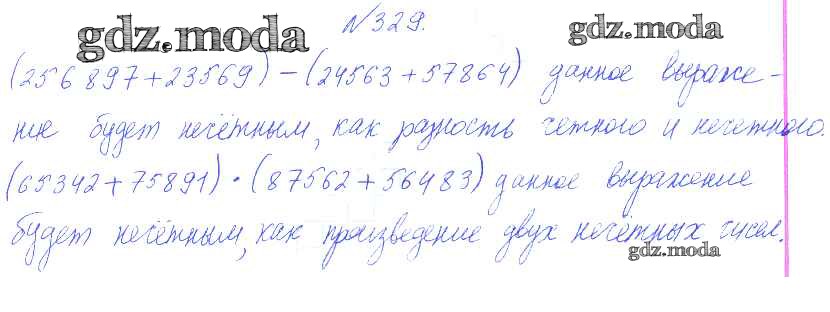 № 329.
gdz.moda gdz.moda
(256 897 + 23569) - (24563 + 57864) данное выраже-
ние будет нечётным, как разность четного и нечетного.
(65342 + 75891) · (87562 + 56483) данное выражение
будет нечётным, как произведение двух нечётных чисел.
gdz.moda